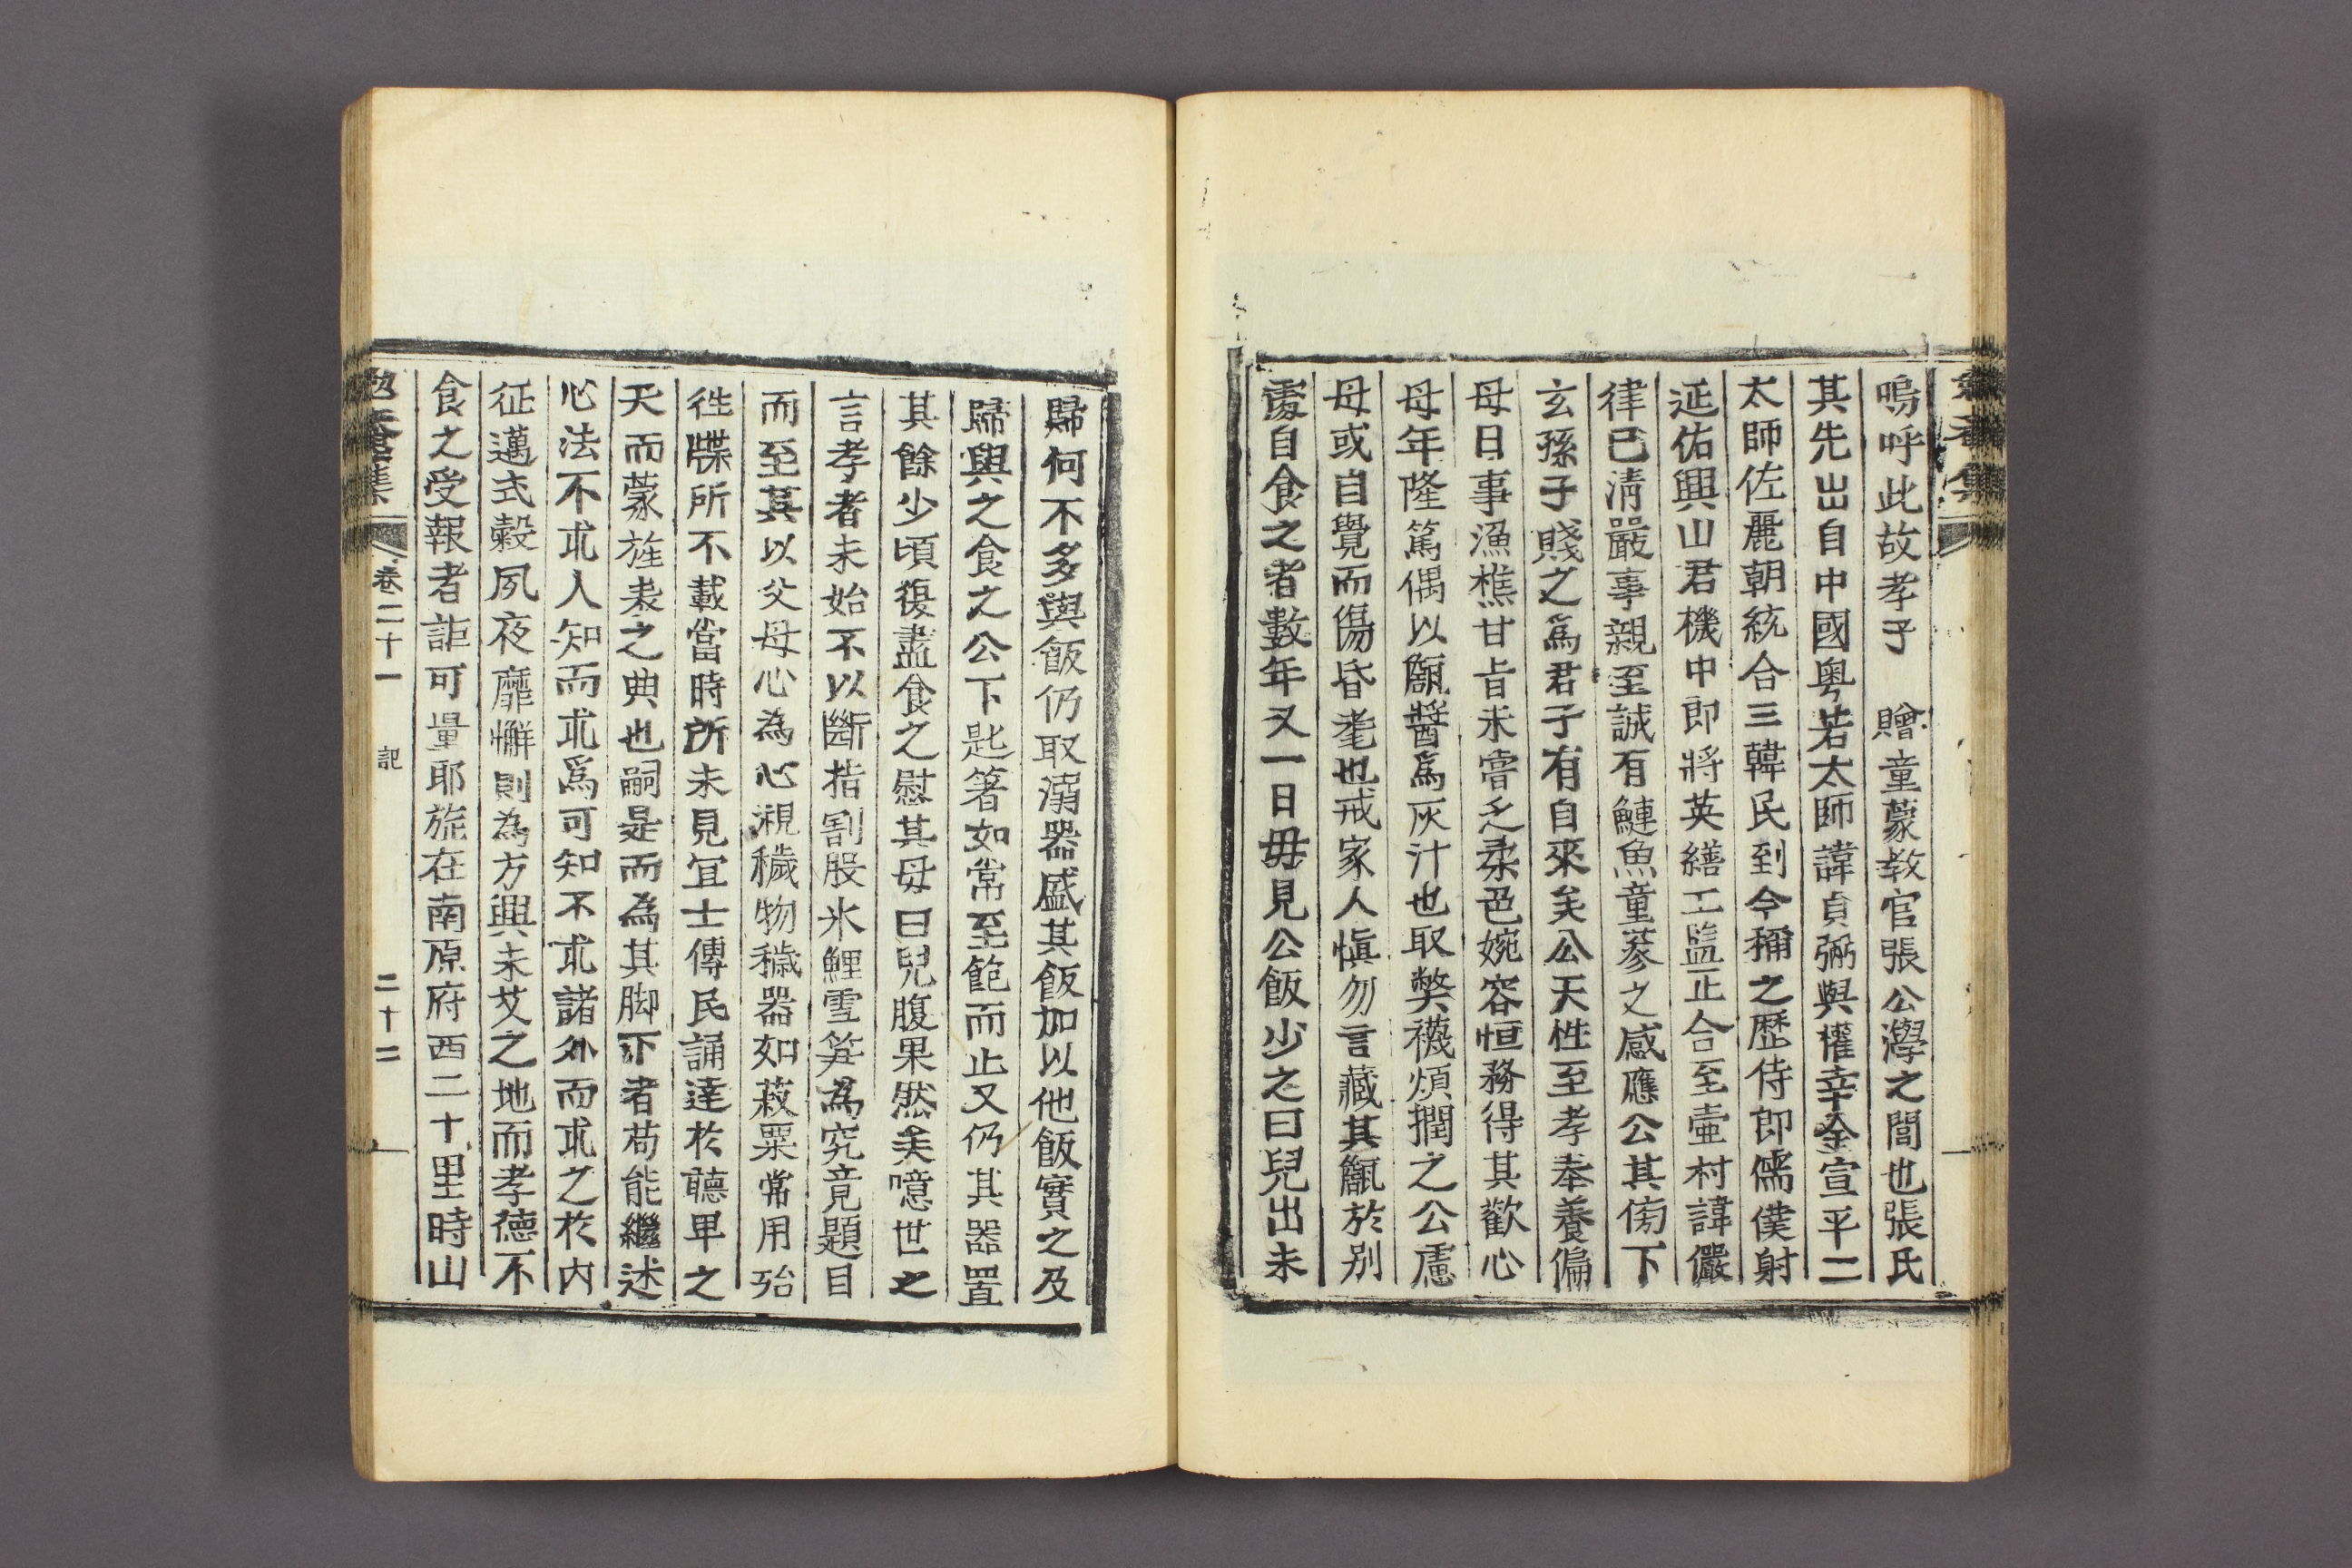 嗚呼此故孝子 贈童蒙敎官張公澩之閭也張氏
其先出自中國粤若太師諱貞弼與權幸金宣平二
太師佐麗朝統合三韓民到今稱之歷侍郞儒僕射
延佑興山君機中郞將英繕工監正合至壷村諱儼
律已淸嚴事親至誠有鰱魚童蔘之感應公其傍下
玄孫子賤之爲君子有自來矣公天性至孝奉養偏
母日事漁樵甘旨未嘗乏柔邑婉容恒務得其歡心
母年隆篤偶以甂醬爲灰汁也取獘襪煩撋之公慮
母或自覺而傷昏耄也戒家人愼勿言藏其甂於別
處自食之者數年又一日毋見公飯少之曰兒出未
歸何不多與飯仍取溺器盛其飯加以他飯實之及
歸與之食之公下匙箸如常至飽而止又仍其器置
其餘少頃復盡食之慰其母曰兒腹果然矣噫世之
言孝者未始不以斷指割股氷鯉雪笋爲究竟題目
而至其以父母心為心視穢物穢器如菽粟常用殆
徃牒所不載當時所未見宜士傳民誦達於聽卑之
天而蒙旌表之典也嗣是而為其脚下者苟能繼述
心法不求人知而求爲可知不求諸外而求之於內
征邁式穀夙夜靡懈則為方興未艾之地而孝德不
食之受報者詎可量耶旋在南原府西二十里時山
勉菴集 卷二十一 記 二十二